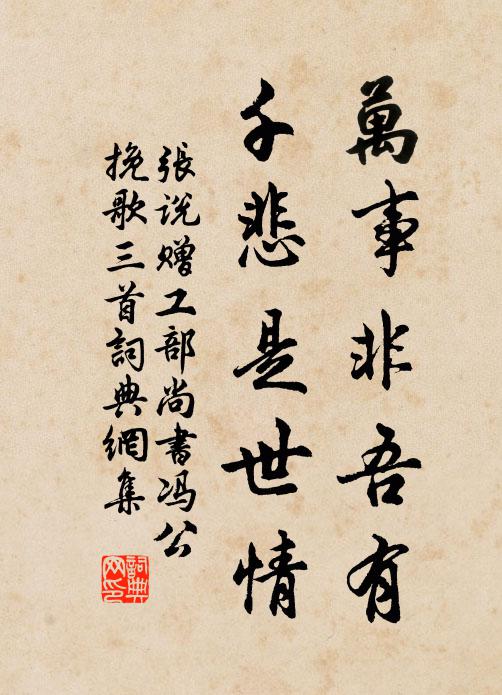 萬事非吾有
千悲是世情
張说赠工部尚書冯公
挽歌三首詞典網集
詞典网印